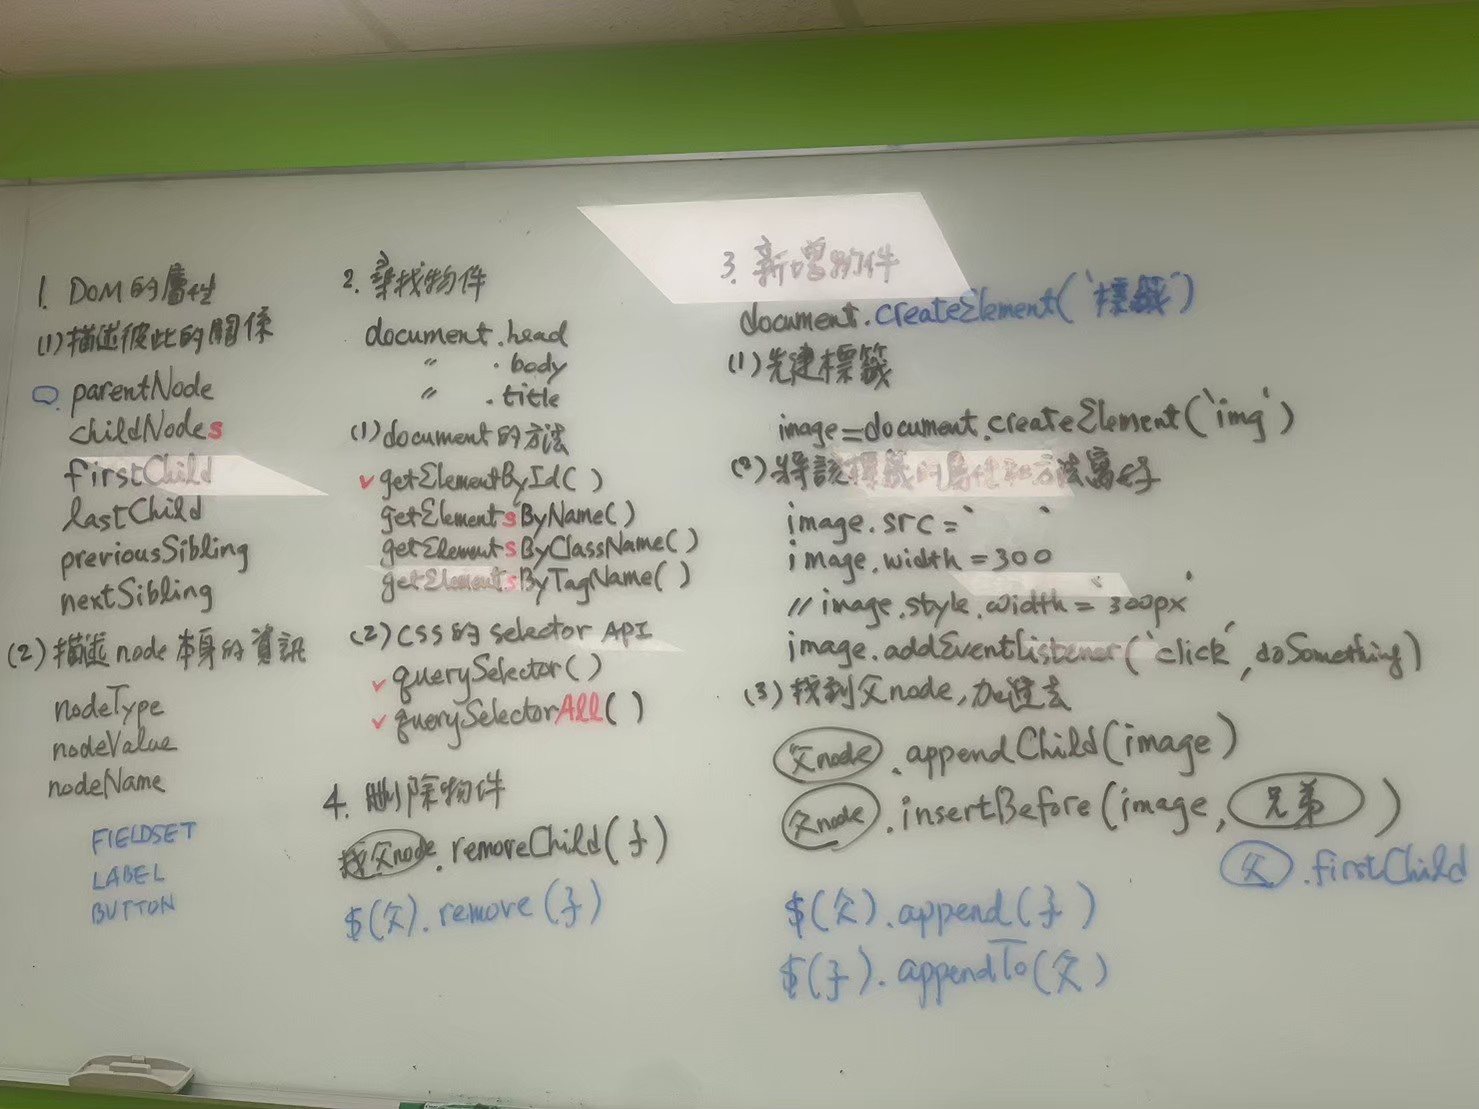 1. DOM的屬性
(1)描述彼此的關係
parentNode
childNodes
firstChild
lastChild
previousSibling
nextSibling
(2)描述node本身的資訊
nodeType
nodeValue
nodeName
FIELDSET
LABEL
BUTTON
2. 尋找物件
document.head
〃 .body
〃 .title
(1)document的方法
✓getElementById()
getElementsByName()
getElementsByClassName()
getElementsByTagName()
(2)CSS的selector API
✓querySelector()
✓querySelectorAll()
4. 刪除物件
找父node.removeChild(子)
$(父).remove(子)
3. 新增物件
document.createElement('標籤')
(1)先建標籤
image=document.createElement('img')
(2)將該標籤的屬性和方法寫好
image.src=' '
image.width=300
//image.style.width='300px'
image.addEventListener('click',doSomething)
(3)找到父node,加進去
父node.appendChild(image)
父node.insertBefore(image,兄弟)
父.firstChild
$(父).append(子)
$(子).appendTo(父)